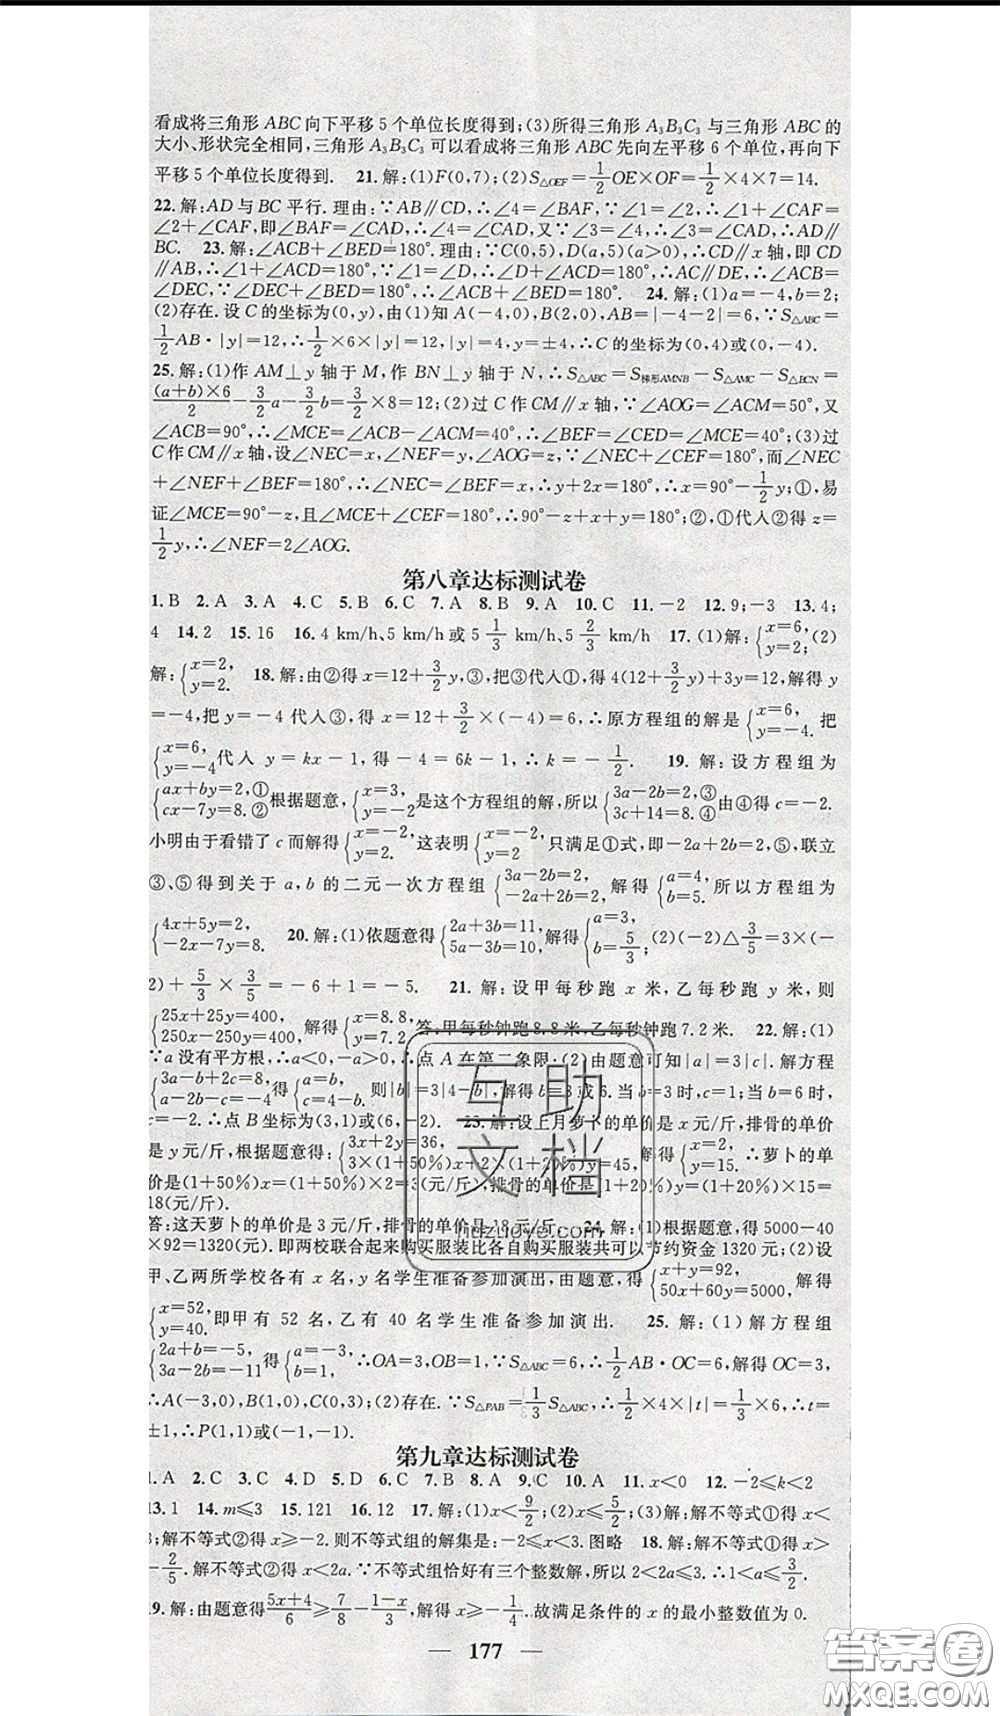 看成将三角形 ABC 向下平移 5 个单位长度得到;(3)所得三角形 A₃B₃C₃ 与三角形 ABC 的
大小、形状完全相同,三角形 A₃B₃C₃ 可以看成将三角形 ABC 先向左平移 6 个单位,再向下
平移 5 个单位长度得到. 21.解:(1)F(0,7);(2)S△OEF=1/2 OE×OF=1/2×4×7=14.
22.解:AD 与 BC 平行.理由:∵AB∥CD,∴∠4=∠BAF,∵∠1=∠2,∴∠1+∠CAF=
∠2+∠CAF,即∠BAF=∠CAD,∴∠4=∠CAD,又∵∠3=∠4,∴∠3=∠CAD,∴AD∥
BC. 23.解:∠ACB+∠BED=180°.理由:∵C(0,5),D(a,5)(a>0),∴CD∥x 轴,即 CD
∥AB,∴∠1+∠ACD=180°,∵∠1=∠D,∴∠D+∠ACD=180°,∴AC∥DE,∴∠ACB=
∠DEC,∵∠DEC+∠BED=180°,∴∠ACB+∠BED=180°. 24.解:(1)a=-4,b=2;
(2)存在.设 C 的坐标为(0,y),由(1)知 A(-4,0),B(2,0),AB=|-4-2|=6,∵S△ABC=
1/2 AB·|y|=12,∴1/2×6×|y|=12,∴|y|=4,y=±4,∴C 的坐标为(0,4)或(0,-4).
25.解:(1)作 AM⊥y 轴于 M,作 BN⊥y 轴于 N,∴S△ABC=S梯形AMNB-S△AMC-S△BCN=
(a+b)×6/2-3/2 a-3/2 b=3/2×8=12;(2)过 C 作 CM∥x 轴,∵∠AOG=∠ACM=50°,又
∠ACB=90°,∴∠MCE=∠ACB-∠ACM=40°,∴∠BEF=∠CED=∠MCE=40°;(3)过
C 作 CM∥x 轴,设∠NEC=x,∠NEF=y,∠AOG=z,∵∠NEC+∠CEF=180°,而∠NEC
+∠NEF+∠BEF=180°,∴∠NEC=∠BEF=x,∴y+2x=180°,∴x=90°-1/2 y;①,易
证∠MCE=90°-z,且∠MCE+∠CEF=180°,∴90°-z+x+y=180°;②,①代人②得 z=
1/2 y,∴∠NEF=2∠AOG.
第八章达标测试卷
1.B 2.A 3.A 4.C 5.B 6.C 7.A 8.B 9.A 10.C 11.-2 12.9;-3 13.4;
4 14.2 15.16 16.4 km/h、5 km/h 或 5 1/3 km/h、5 2/3 km/h 17.(1)解:{x=6, y=2;(2)
解:{x=2, y=2. 18.解:由②得 x=12+3/2 y,③,把③代人①,得 4(12+3/2 y)+3y=12,解得 y
=-4,把 y=-4 代人③,得 x=12+3/2×(-4)=6,∴原方程组的解是{x=6, y=-4. 把
{x=6, y=-4 代人 y=kx-1,得-4=6k-1,∴k=-1/2. 19.解:设方程组为
{ax+by=2,① cx-7y=8.② 根据题意,{x=3, y=-2 是这个方程组的解,所以{3a-2b=2,③ 3c+14=8.④ 由④得 c=-2.
小明由于看错了 c 而解得{x=-2, y=2. 这表明{x=-2, y=2 只满足①式,即-2a+2b=2,⑤,联立
③、⑤得到关于 a,b 的二元一次方程组{3a-2b=2, -2a+2b=2, 解得{a=4, b=5. 所以方程组为
{4x+5y=2, -2x-7y=8. 20.解:(1)依题意得{2a+3b=11, 5a-3b=10, 解得{a=3, b=5/3;(2)(-2)△3/5=3×(-
2)+5/3×3/5=-6+1=-5. 21.解:设甲每秒跑 x 米,乙每秒跑 y 米,则
{25x+25y=400, 250x-250y=400, 解得{x=8.8, y=7.2. 答:甲每秒钟跑 8.8 米,乙每秒钟跑 7.2 米. 22.解:(1)
∵a 没有平方根,∴a<0,-a>0,∴点 A 在第二象限;(2)由题意可知|a|=3|c|.解方程
{3a-b+2c=8, a-2b-c=-4 得{a=b, c=4-b. 则|b|=3|4-b|,解得 b=3 或 6.当 b=3 时,c=1;当 b=6 时,
c=-2.∴点 B 坐标为(3,1)或(6,-2). 23.解:设上月萝卜的单价是 x 元/斤,排骨的单价
是 y 元/斤,根据题意得:{3x+2y=36, 3×(1+50%)x+2×(1+20%)y=45, 解得{x=2, y=15. ∴萝卜的单
价是(1+50%)x=(1+50%)×2=3(元/斤),排骨的单价是(1+20%)y=(1+20%)×15=
18(元/斤).
答:这天萝卜的单价是 3 元/斤,排骨的单价是 18 元/斤. 24.解:(1)根据题意,得 5000-40
×92=1320(元).即两校联合起来购买服装比各自购买服装共可以节约资金 1320 元;(2)设
甲、乙两所学校各有 x 名,y 名学生准备参加演出,由题意,得{x+y=92, 50x+60y=5000, 解得
{x=52, y=40. 即甲有 52 名,乙有 40 名学生准备参加演出. 25.解:(1)解方程组
{2a+b=-5, 3a-2b=-11 得{a=-3, b=1, ∴OA=3,OB=1,∵S△ABC=6,∴1/2 AB·OC=6,解得 OC=3,
∴A(-3,0),B(1,0),C(0,3);(2)存在.∵S△PAB=1/3 S△ABC,∴1/2×4×|t|=1/3×6,∴t=
±1,∴P(1,1)或(1,-1).
第九章达标测试卷
1.A 2.C 3.C 4.D 5.D 6.C 7.B 8.A 9.C 10.A 11.x<0 12.-2≤k<2
13.1 14.m≤3 15.121 16.12 17.解:(1)x<9/2;(2)x≤5/2;(3)解:解不等式①得 x<
3;解不等式②得 x≥-2.则不等式组的解集是:-2≤x<3.图略 18.解:解不等式①得 x>
-2/5.解不等式②得 x<2a.∵不等式组恰好有三个整数解,所以 2<2a≤3.∴1<a≤3/2.
19.解:由题意得 5x+4/6≥7/8-1-x/3,解得 x≥-1/4.故满足条件的 x 的最小整数值为 0.
— 177 —
互助
文档
huzuoye.com
答案卷
MXQE.COM